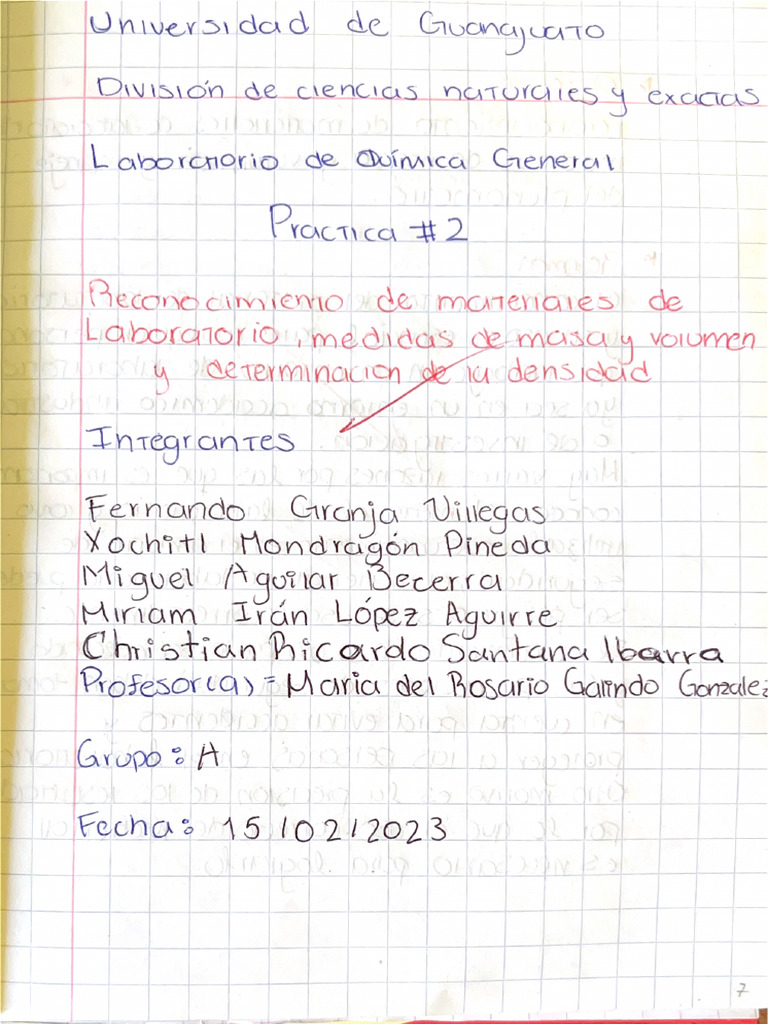 Universidad de Guanajuato
División de ciencias naturales y exactas
Laboratorio de Química General
Practica #2
Reconocimiento de materiales de
Laboratorio, medidas de masa y volumen
y determinacion de la densidad
Integrantes
Fernando Granja Villegas
Xochitl Mondragón Pineda
Miguel Aguilar Becerra
Miriam Irán López Aguirre
Christian Ricardo Santana Ibarra
Profesor(a) = Maria del Rosario Galindo Gonzalez
Grupo: A
Fecha: 15/02/2023
7